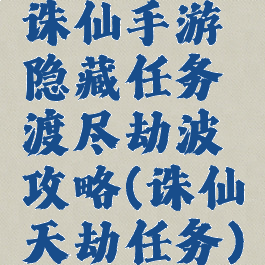 诛仙手游
隐藏任务
渡尽劫波
攻略(诛仙
天劫任务)